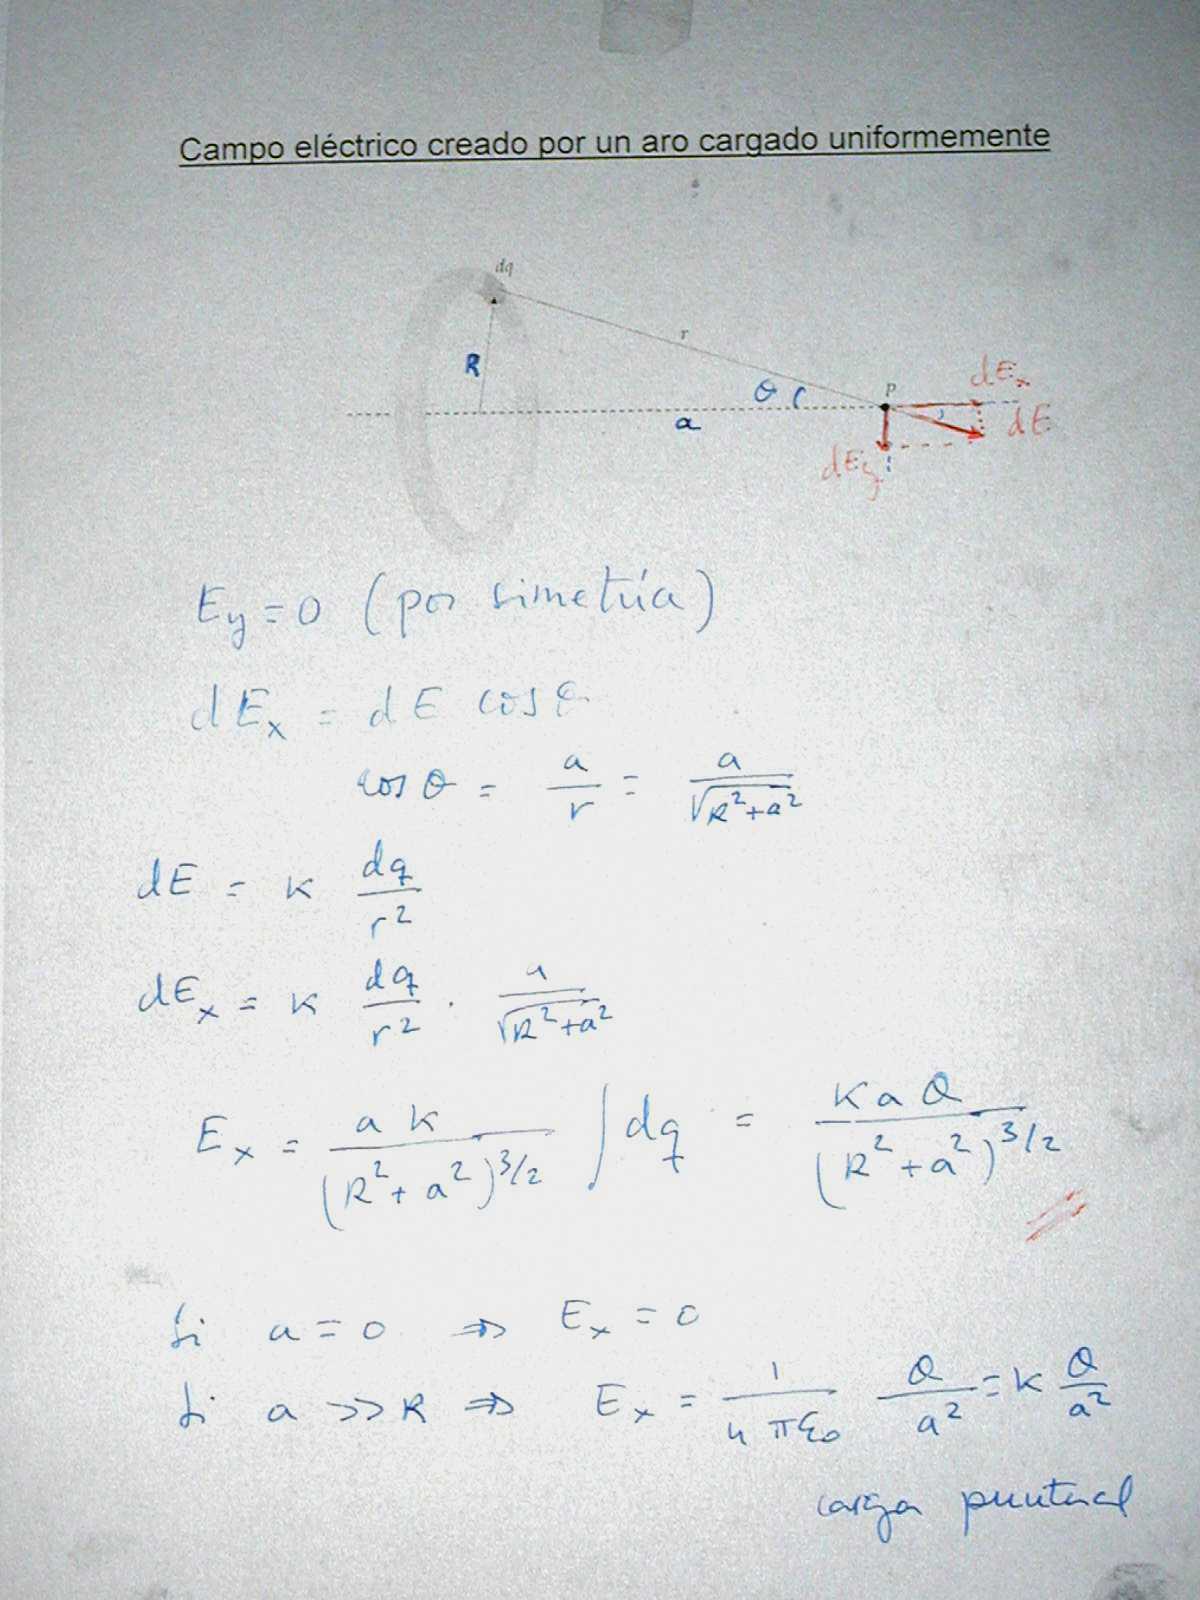 Campo eléctrico creado por un aro cargado uniformemente
dq
r
R
θ
P
dEx
a
dE
dEy
Ey = 0 (por simetría)
dEx = dE cos θ
cos θ = a/r = a/√(R²+a²)
dE = K dq/r²
dEx = K dq/r² · a/√(R²+a²)
Ex = a K/(R²+a²)^3/2 ∫dq = K a Q/(R²+a²)^3/2
Si a = 0 ⇒ Ex = 0
Si a >> R ⇒ Ex = 1/4πε₀ Q/a² = K Q/a²
carga puntual